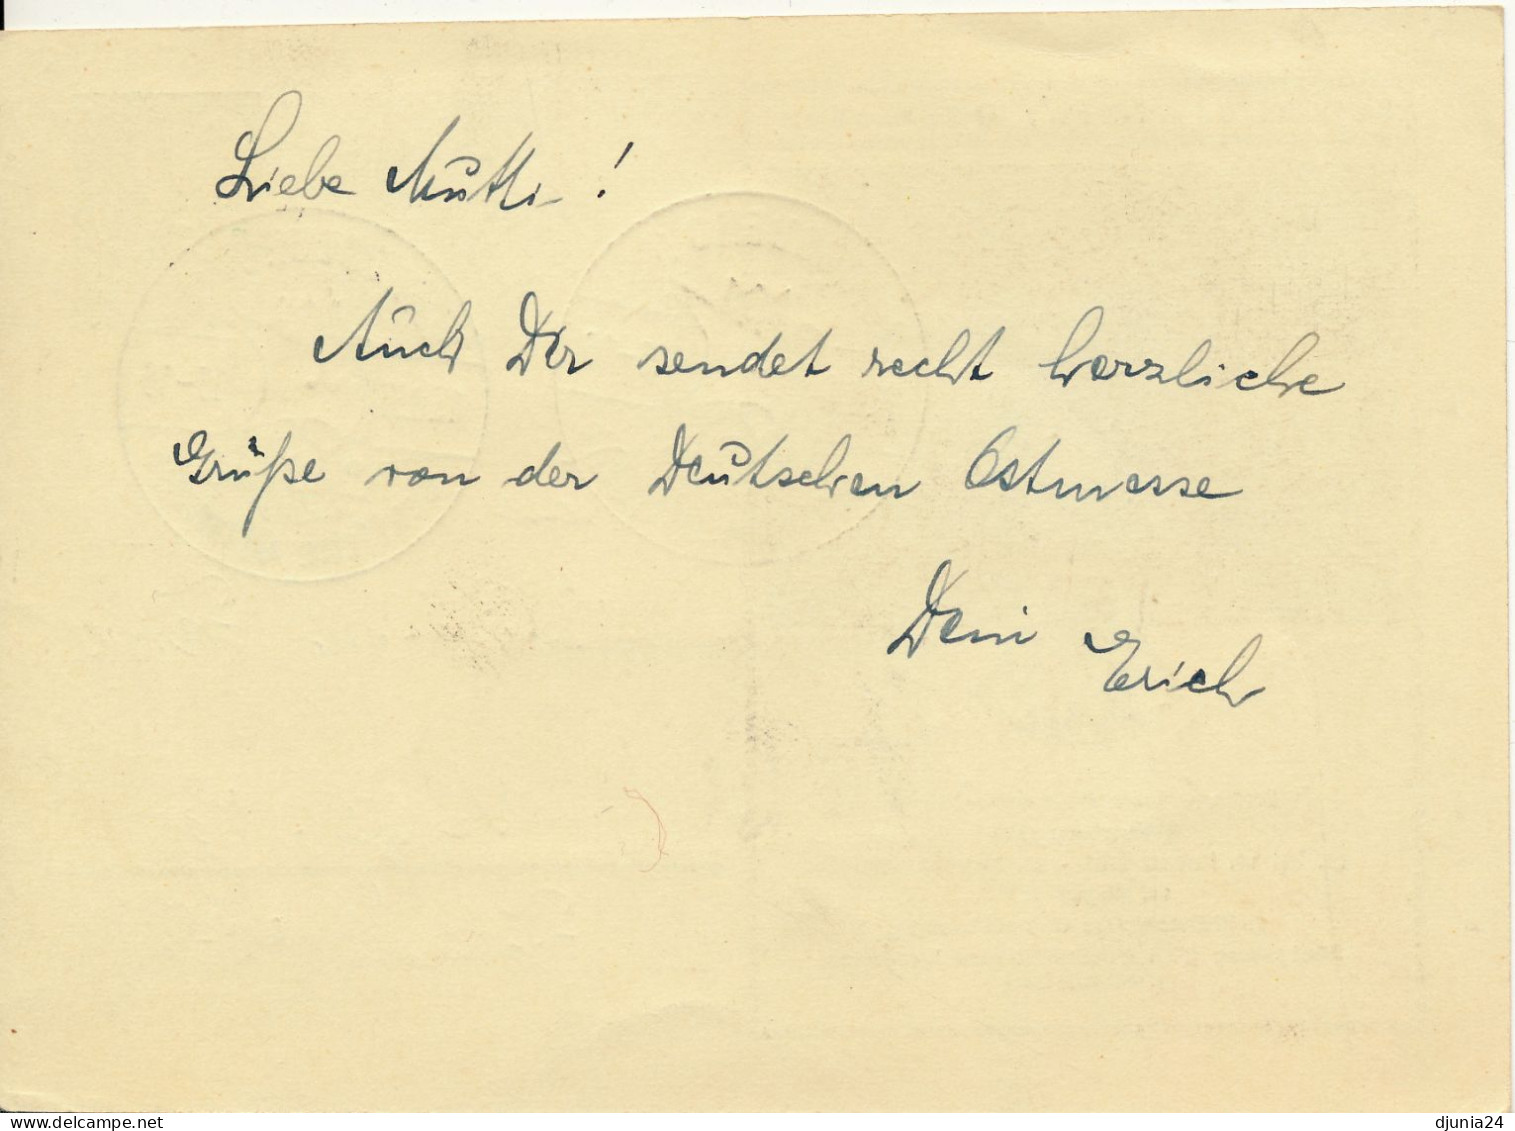 Liebe Mutti!
Auch Dir sendet recht herzliche
Grüße von der Deutschen Ostmesse
Dein
Erich
delcampe.net
djunia24